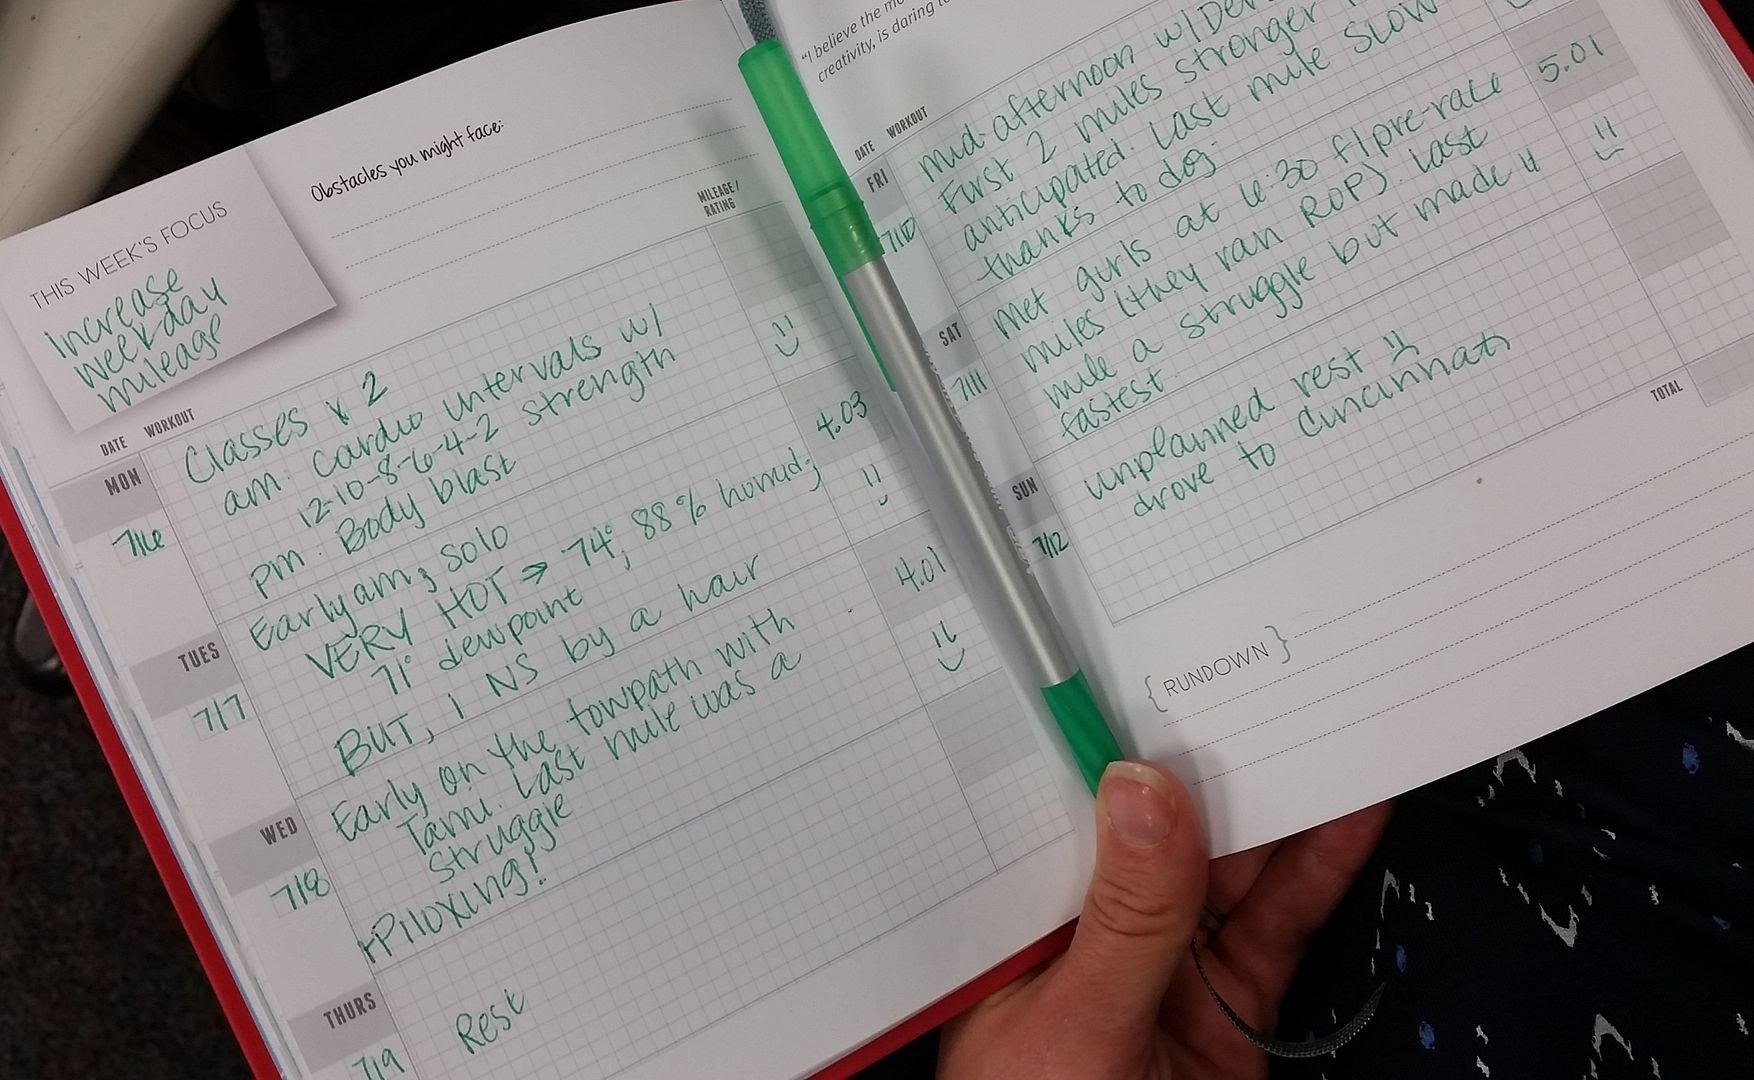 THIS WEEK'S FOCUS
Increase
weekday
mileage
Obstacles you might face:
DATE WORKOUT
MILEAGE/
RATING
MON
7/6
Classes x 2
am: cardio intervals w/
12-10-8-6-4-2 strength
pm: Body blast
TUES
7/7
Early am, solo
VERY HOT → 74°, 88% humid,
71° dewpoint
BUT, I NS by a hair
4.03
WED
7/8
Early on the towpath with
Tami. Last mile was a
struggle
+Piloxing!
4.01
THURS
7/9
Rest
"I believe the
creativity, is daring
DATE WORKOUT
FRI
7/10
mid-afternoon w/
First 2 miles stronger
anticipated. Last mile slow
thanks to dog.
SAT
7/11
Met girls at 6:30 f/pre-race
miles (they ran ROP). Last
mile a struggle but made it
fastest.
5.01
SUN
7/12
unplanned rest
drove to Cincinnati
TOTAL
{ RUNDOWN }